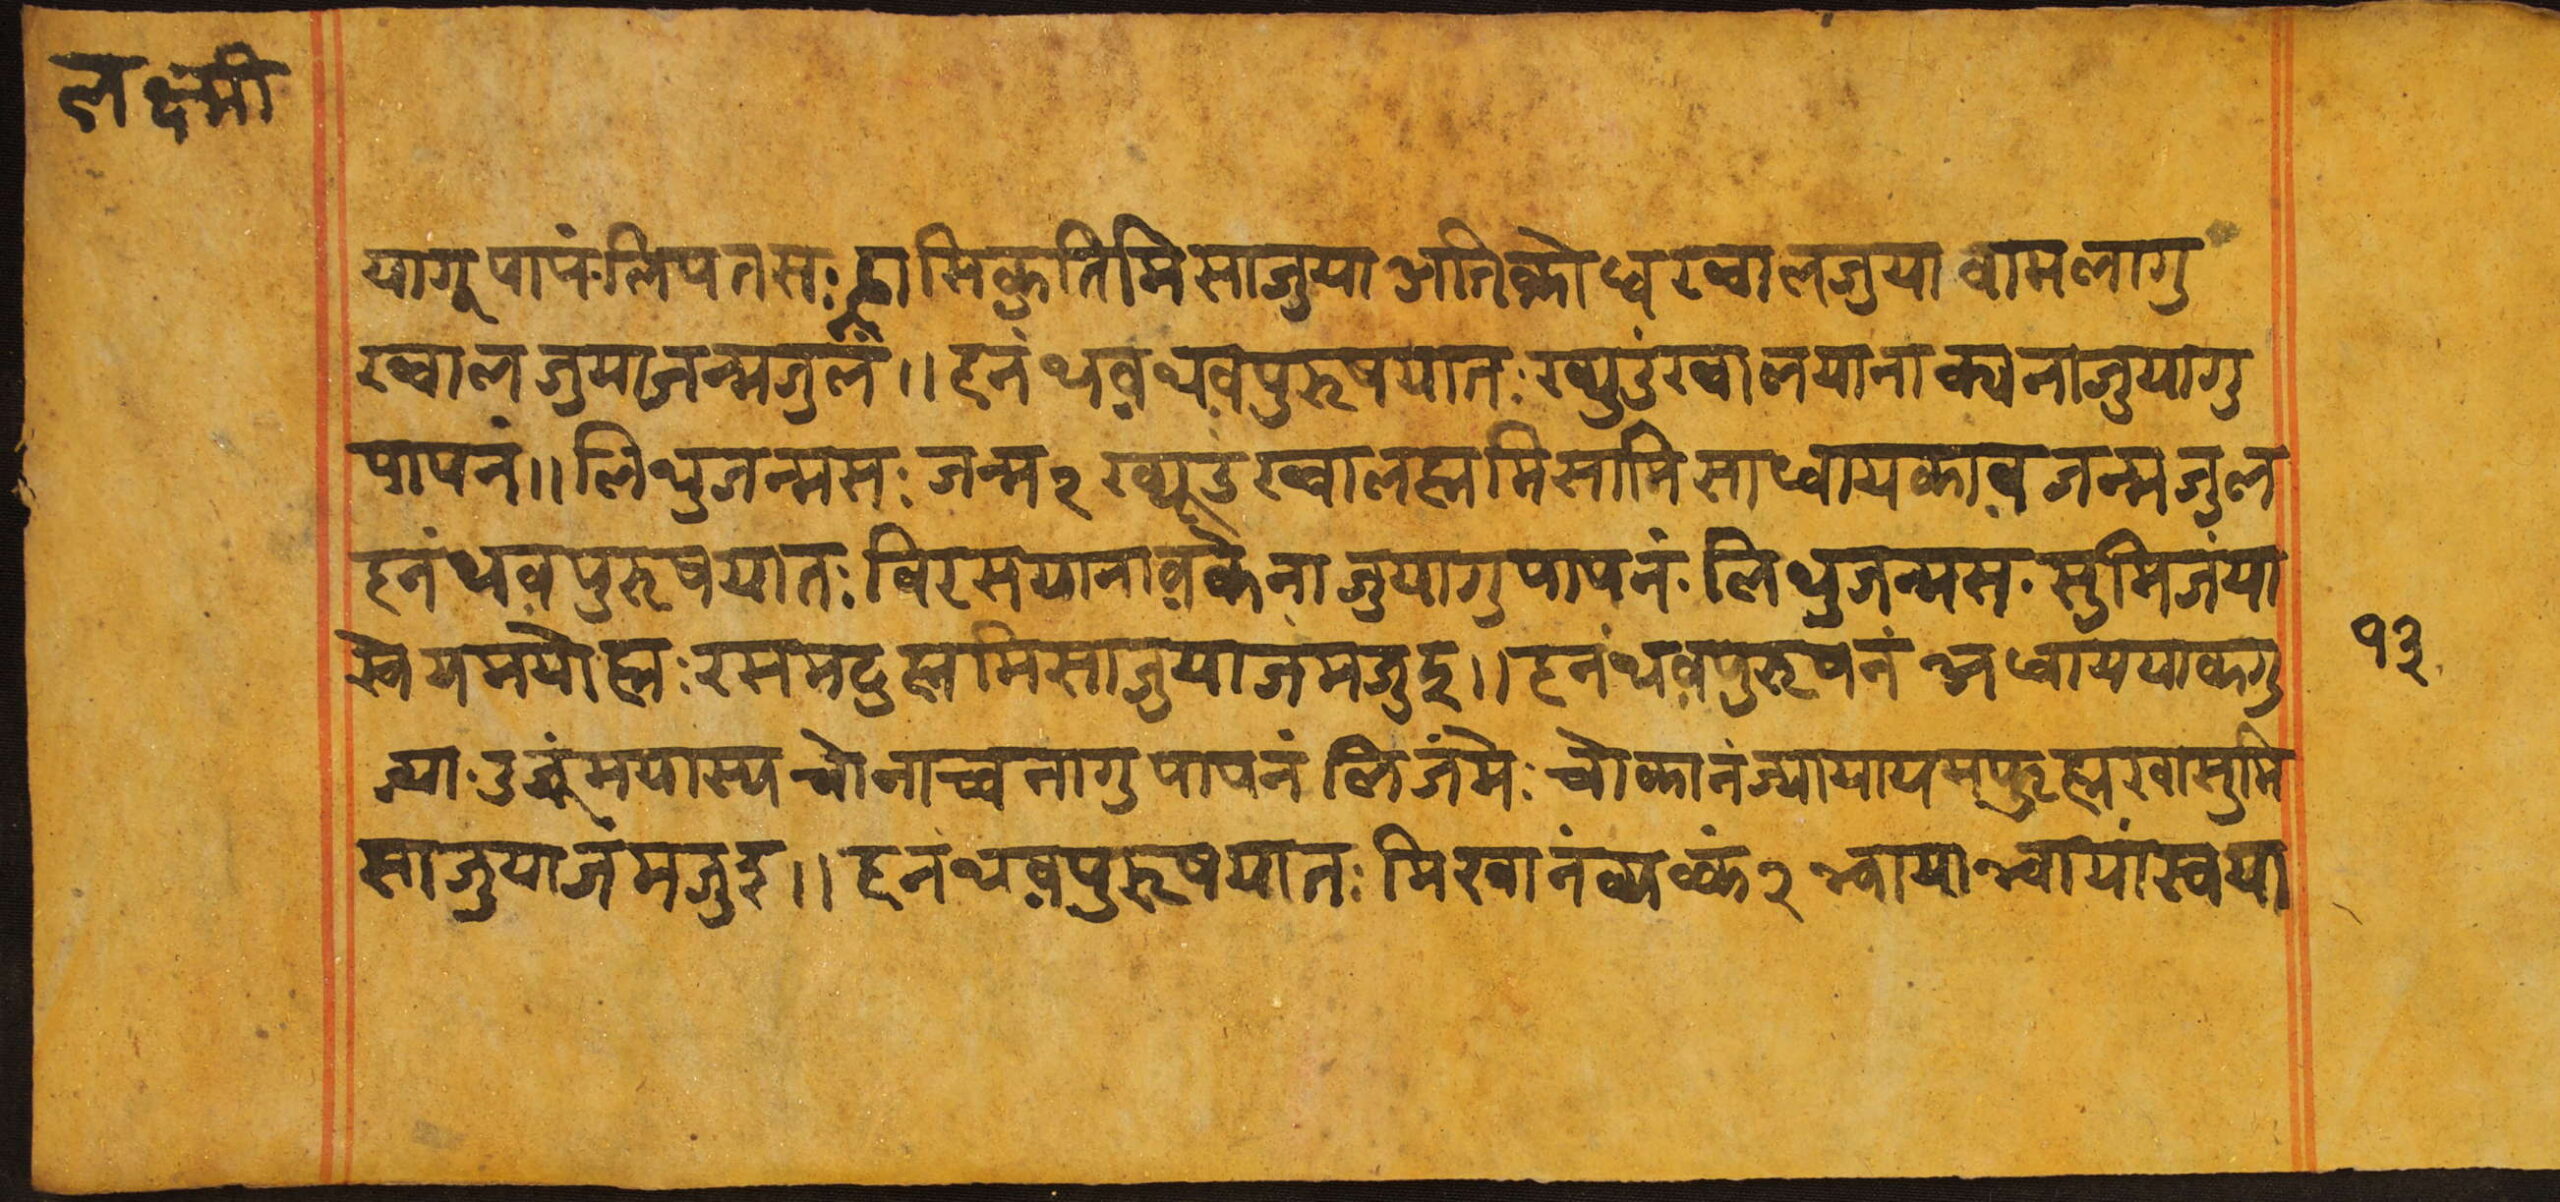 लक्ष्मी
यागू पापं लिपतसः ह्रासिकुतिमिसाजुया अतिक्रोध्व रख्वालजुया वामलागु
रख्वाल जुयाजन्मजुलं ॥ हनं थव़थव़पुरूषयातः ख्युउंरख्वालयाना क्यनाजुयागु
पापनं ॥ लिथुजन्मसः जन्म २ ख्यूउंरख्वालह्ममिसामिसाध्वायकाव़ जन्मजुल
हनंथव़पुरूषयातः विरसयानाव़केनाजुयागुपापनं. लिथुजन्मस. सुमिजंया
स्नेयमयोह्मः रसमदुह्ममिसाजुयाजंमजुइ ॥ हनंथव़पुरूषनं अध्वाययाकगु
ज्या. उजूंमयास्य चोनाच्वनागुपापनं लिजंमेः चोकानंज्यायायमफुह्मखासुमि
साजुयाजंमजुइ ॥ हनंथव़पुरूषयातः मिखानंव्यक्कं २ भ्वायाभ्वायांस्वया
१३